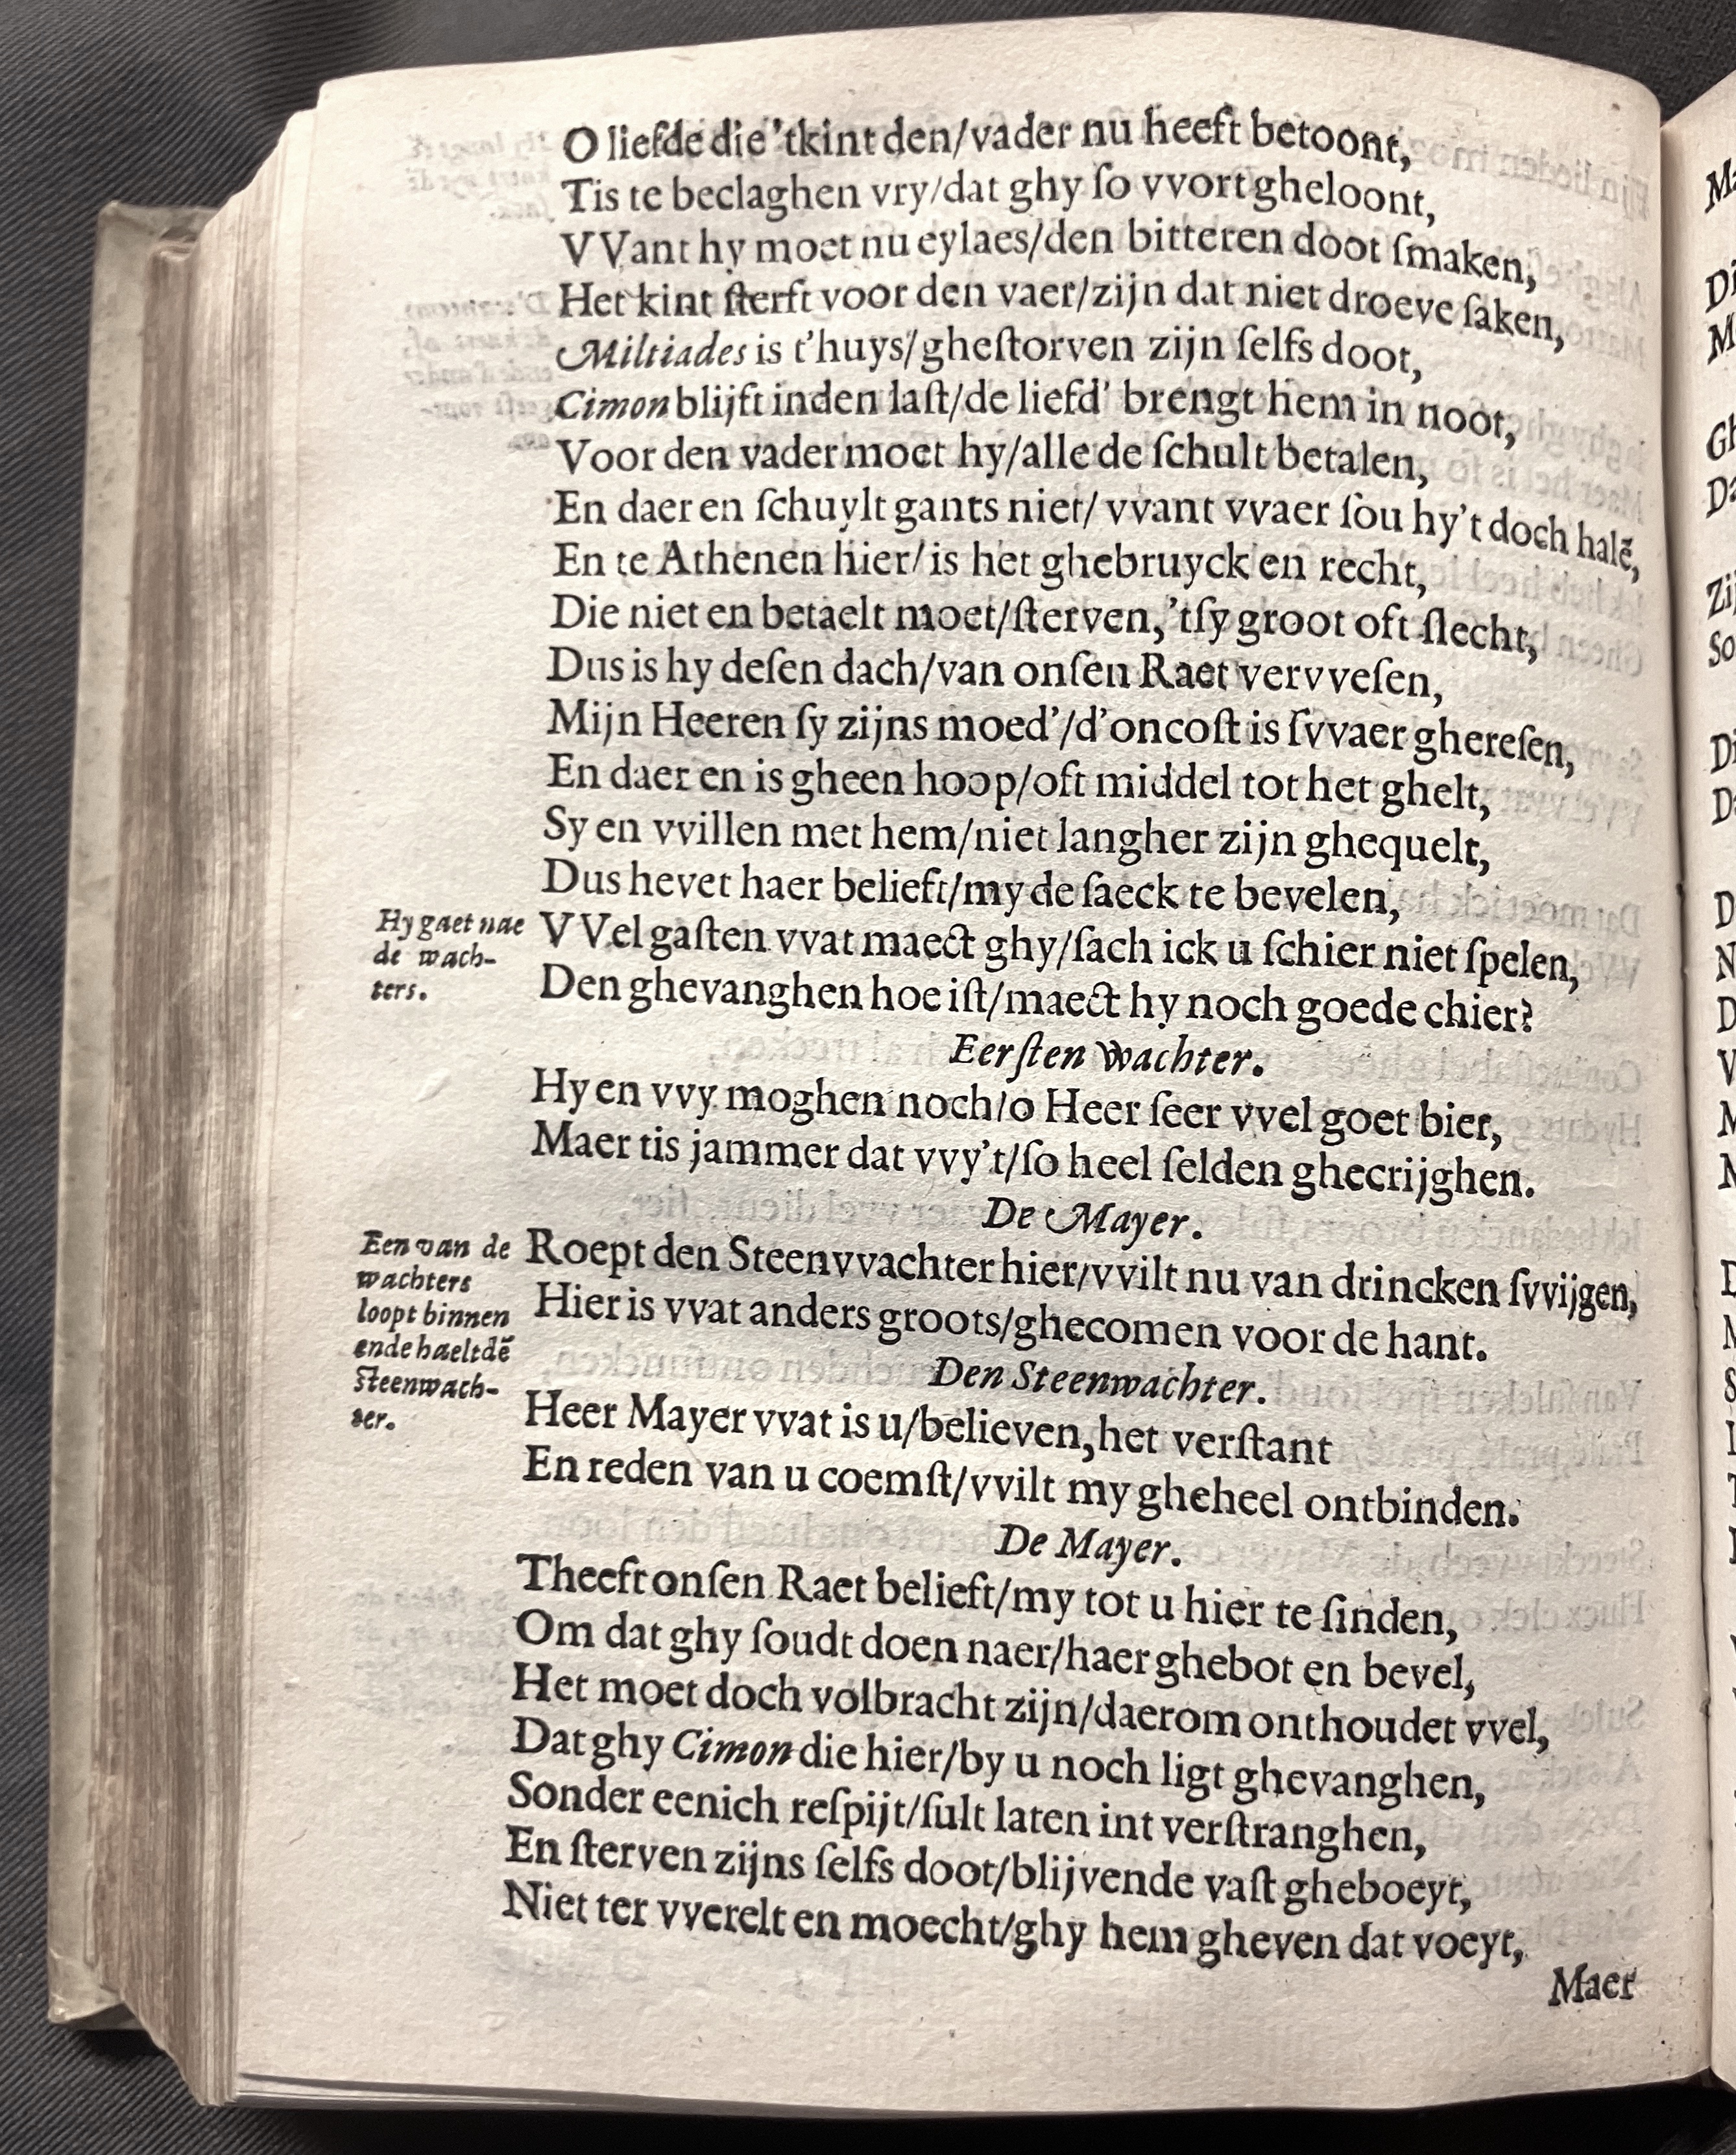 O liefde die 'tkint den/vader nu heeft betoont,
Tis te beclaghen vry/dat ghy ſo vvort gheloont,
VVant hy moet nu eylaes/den bitteren doot ſmaken,
Het kint ſterft voor den vaer/zijn dat niet droeve ſaken,
Miltiades is t'huys/gheſtorven zijn ſelfs doot,
Cimon blijft inden laſt/de liefd' brengt hem in noot,
Voor den vader moet hy/alle de ſchult betalen,
En daer en ſchuylt gants niet/vvant vvaer ſou hy't doch halẽ,
En te Athenen hier/is het ghebruyck en recht,
Die niet en betaelt moet/ſterven,'tſy groot oft ſlecht,
Dus is hy deſen dach/van onſen Raet vervveſen,
Mijn Heeren ſy zijns moed'/d'oncoſt is ſvvaer ghereſen,
En daer en is gheen hoop/oft middel tot het ghelt,
Sy en vvillen met hem/niet langher zijn ghequelt,
Dus hevet haer belieft/my de ſaeck te bevelen,
Hy gaet nae
de wach-
ters.
VVel gaſten vvat maect ghy/ſach ick u ſchier niet ſpelen,
Den ghevanghen hoe iſt/maect hy noch goede chier?
Eerſten wachter.
Hy en vvy moghen noch/o Heer ſeer vvel goet bier,
Maer tis jammer dat vvy't/ſo heel ſelden ghecrijghen.
De Mayer.
Een van de
wachters
loopt binnen
ende haelt dẽ
ſteenwach-
ter.
Roept den Steenvvachter hier/vvilt nu van drincken ſvvijgen,
Hier is vvat anders groots/ghecomen voor de hant.
Den Steenwachter.
Heer Mayer vvat is u/believen,het verſtant
En reden van u coemſt/vvilt my gheheel ontbinden.
De Mayer.
Theeft onſen Raet belieft/my tot u hier te ſinden,
Om dat ghy ſoudt doen naer/haer ghebot en bevel,
Het moet doch volbracht zijn/daerom onthoudet vvel,
Dat ghy Cimon die hier/by u noch ligt ghevanghen,
Sonder eenich reſpijt/ſult laten int verſtranghen,
En ſterven zijns ſelfs doot/blijvende vaſt gheboeyt,
Niet ter vverelt en moecht/ghy hem gheven dat voeyt,
Maer